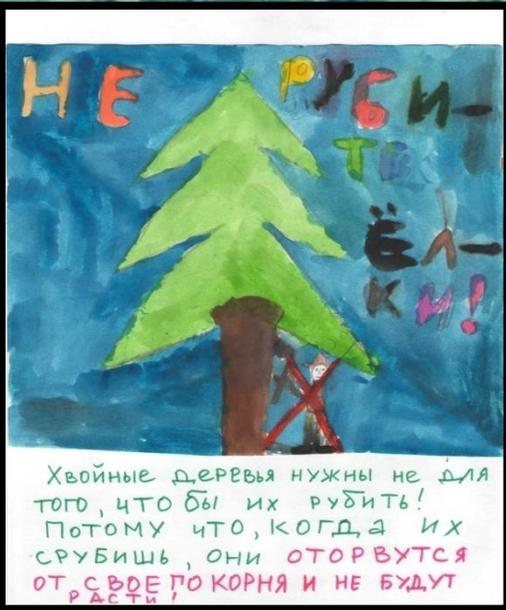 НЕ РУБИ-
ТЕ
ЁЛ-
КИ!
Хвойные деревья нужны не для
того, что бы их рубить!
Потому что, когда их
срубишь, они оторвутся
от своего корня и не будут
расти!